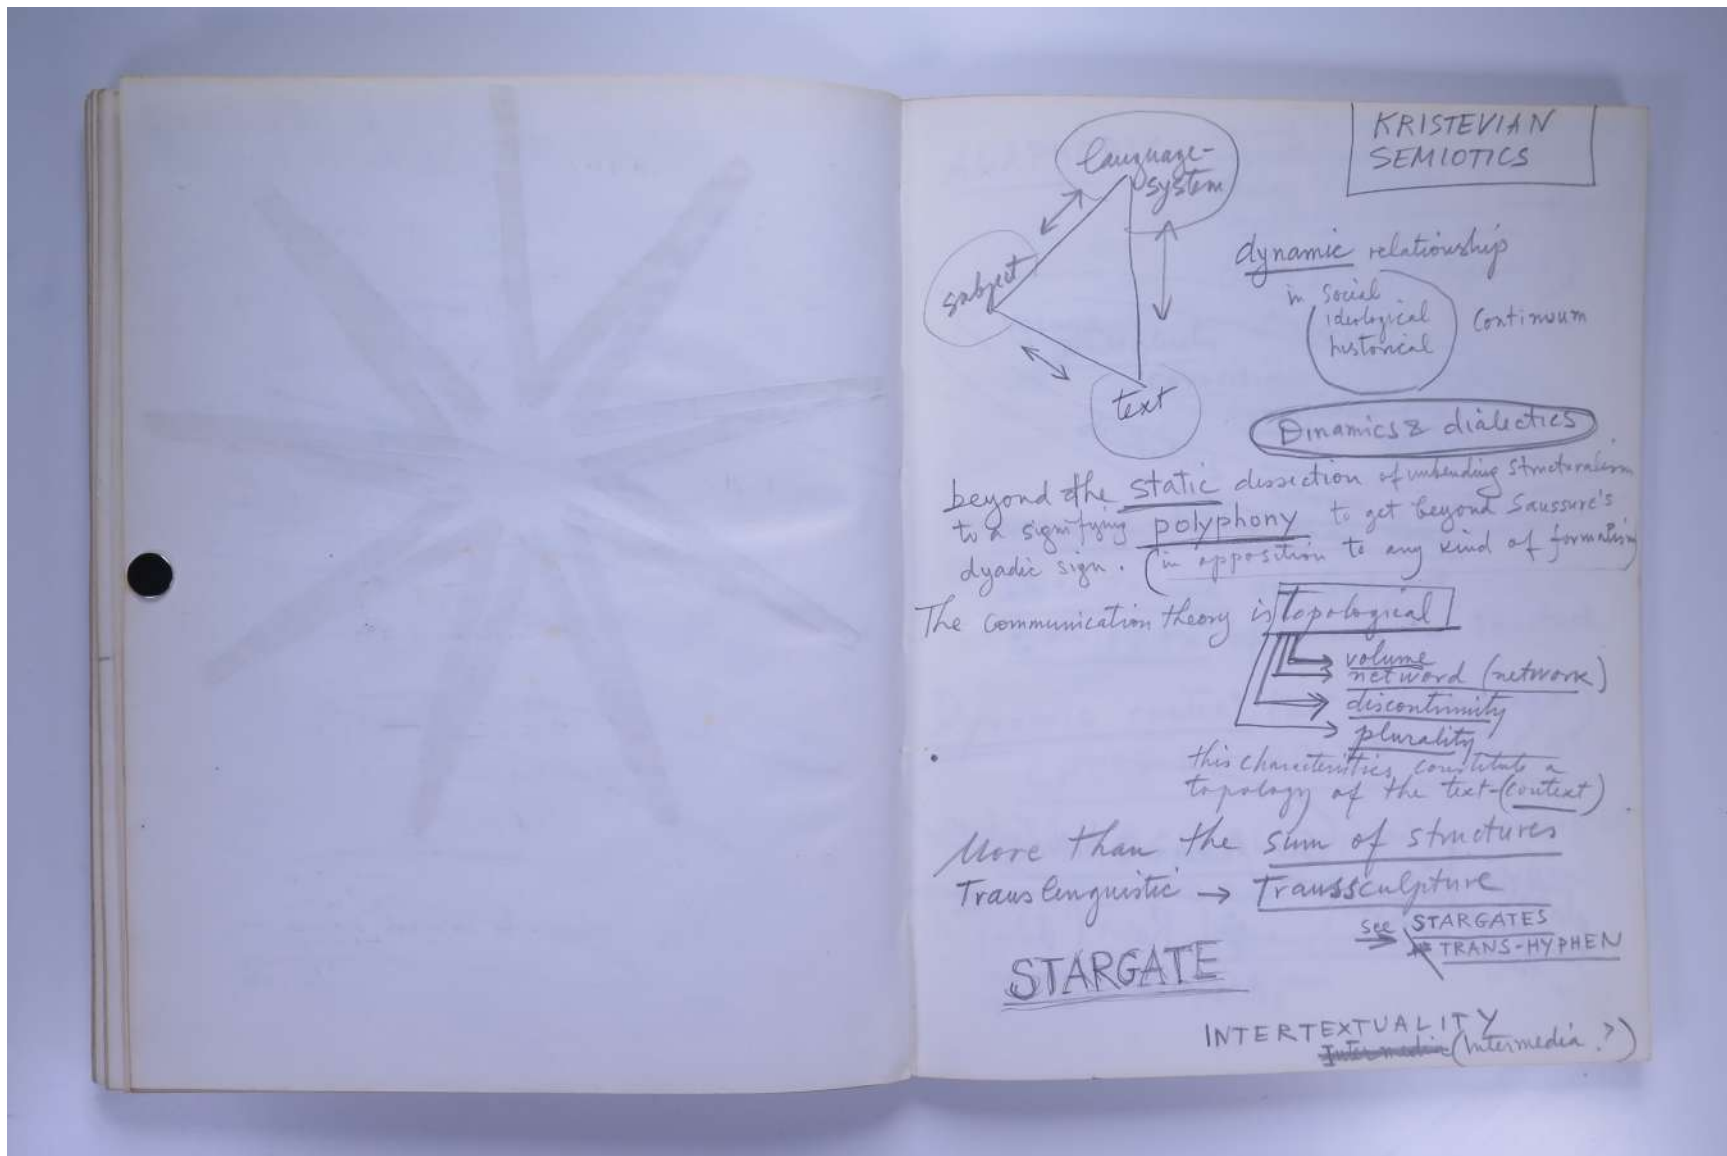 KRISTEVIAN
SEMIOTICS
language-
system
subject
text
dynamic relationship
in social
ideological
historical
Continuum
Dinamics & dialectics
beyond the static dissection of unbending structuralism
to a signifying polyphony to get beyond Saussure's
dyadic sign. (in opposition to any kind of formalism)
The communication theory is topological
volume
netword (network)
discontinuity
plurality
this characteristics constitute a
topology of the text-(context)
More than the sum of structures
Translinguistic → Transsculpture
see STARGATES
TRANS-HYPHEN
STARGATE
INTERTEXTUALITY
Intermedia (Intermedia?)